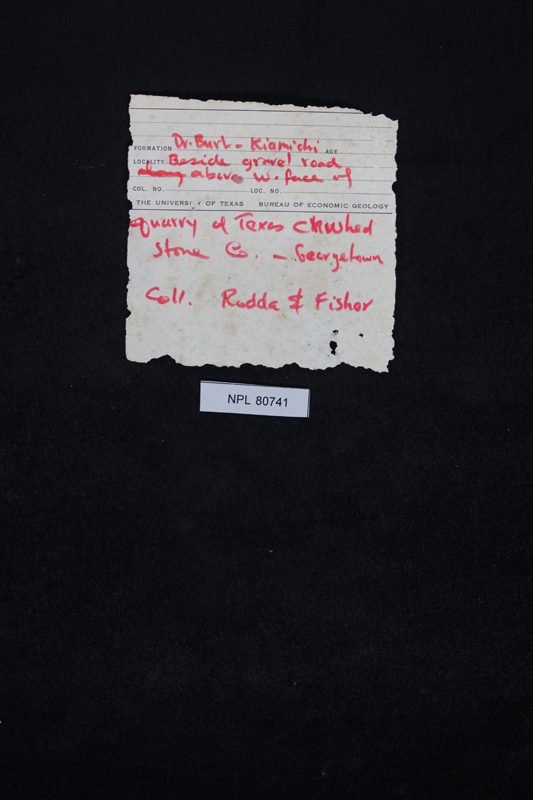 FORMATION Dr. Burl - Kiamichi AGE
LOCALITY Beside gravel road
along above W. face of
COL. NO. LOC. NO.
THE UNIVERSITY OF TEXAS BUREAU OF ECONOMIC GEOLOGY
quarry of Texas Crushed
Stone Co. - Georgetown
Coll. Rodda & Fisher
NPL 80741